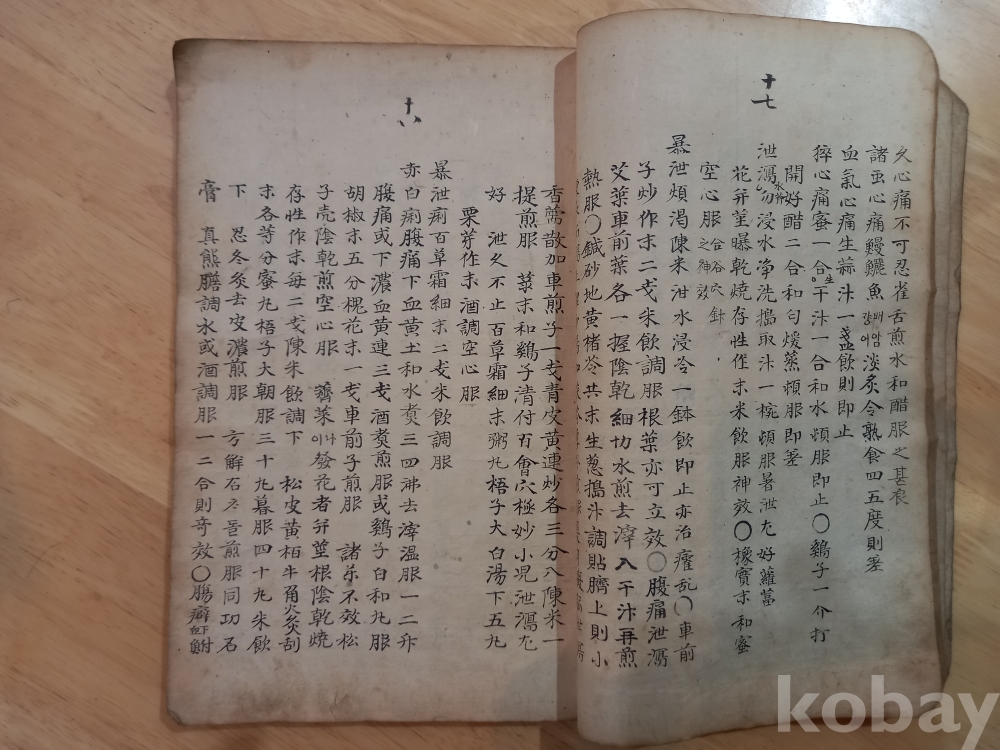 十七
久心痛不可忍雀舌煎水和醋服之甚良
諸虫心痛鰻鱺魚 강 배암어 淡炙令熟食四五度則差
血氣心痛生蒜汁一盞飲則即止
猝心痛蜜一合生干汁一合和水頓服即止〇鷄子一介打
開好醋二合和匀煖蒸頓服即差
泄瀉 水 勿浸水净洗搗取汁一椀頓服暑泄尤好蘿葍
花并莖曝乾燒存性作末米飲服神效〇橡實末和蜜
空心服 合谷穴針之神效
暴泄煩渴陳米泔水浸冷一鉢飲即止亦治癨乱〇車前
子炒作末二戔米飲調服根葉亦可立效〇腹痛泄瀉
艾葉車前葉各一握陰乾細切水煎去滓入干汁再煎
熱服〇鍼砂地黄楮苓共末生葱搗汁調貼臍上則小
十八
香薷散加車煎子一戔青皮黄連炒各三分入陳米一
提煎服 末和鷄子清付百會穴極妙小児泄瀉尤
好 泄久不止百草霜細末粥丸梧子大白湯下五九
栗芽作末酒調空心服
暴泄痢百草霜細末二戔米飲調服
亦白痢腹痛下血黄土和水煑三四沸去滓温服一二升
腹痛或下濃血黄連三戔酒煑煎服或鷄子白和丸服
胡椒末五分槐花末一戔車前子煎服 諸茶不效松
子売陰乾煎空心服 薺菜 나이 發花者并莖根陰乾燒
存性作末每二戔陳米飲調下 松皮黄栢牛角灸刮
末各等分蜜丸梧子大朝服三十九暮服四十九米飲
下 忍冬灸去皮濃煎服 方解石 돌 煎服同功石
膏 真熊膽調水或酒調服一二合則奇效〇腸癖
kobay